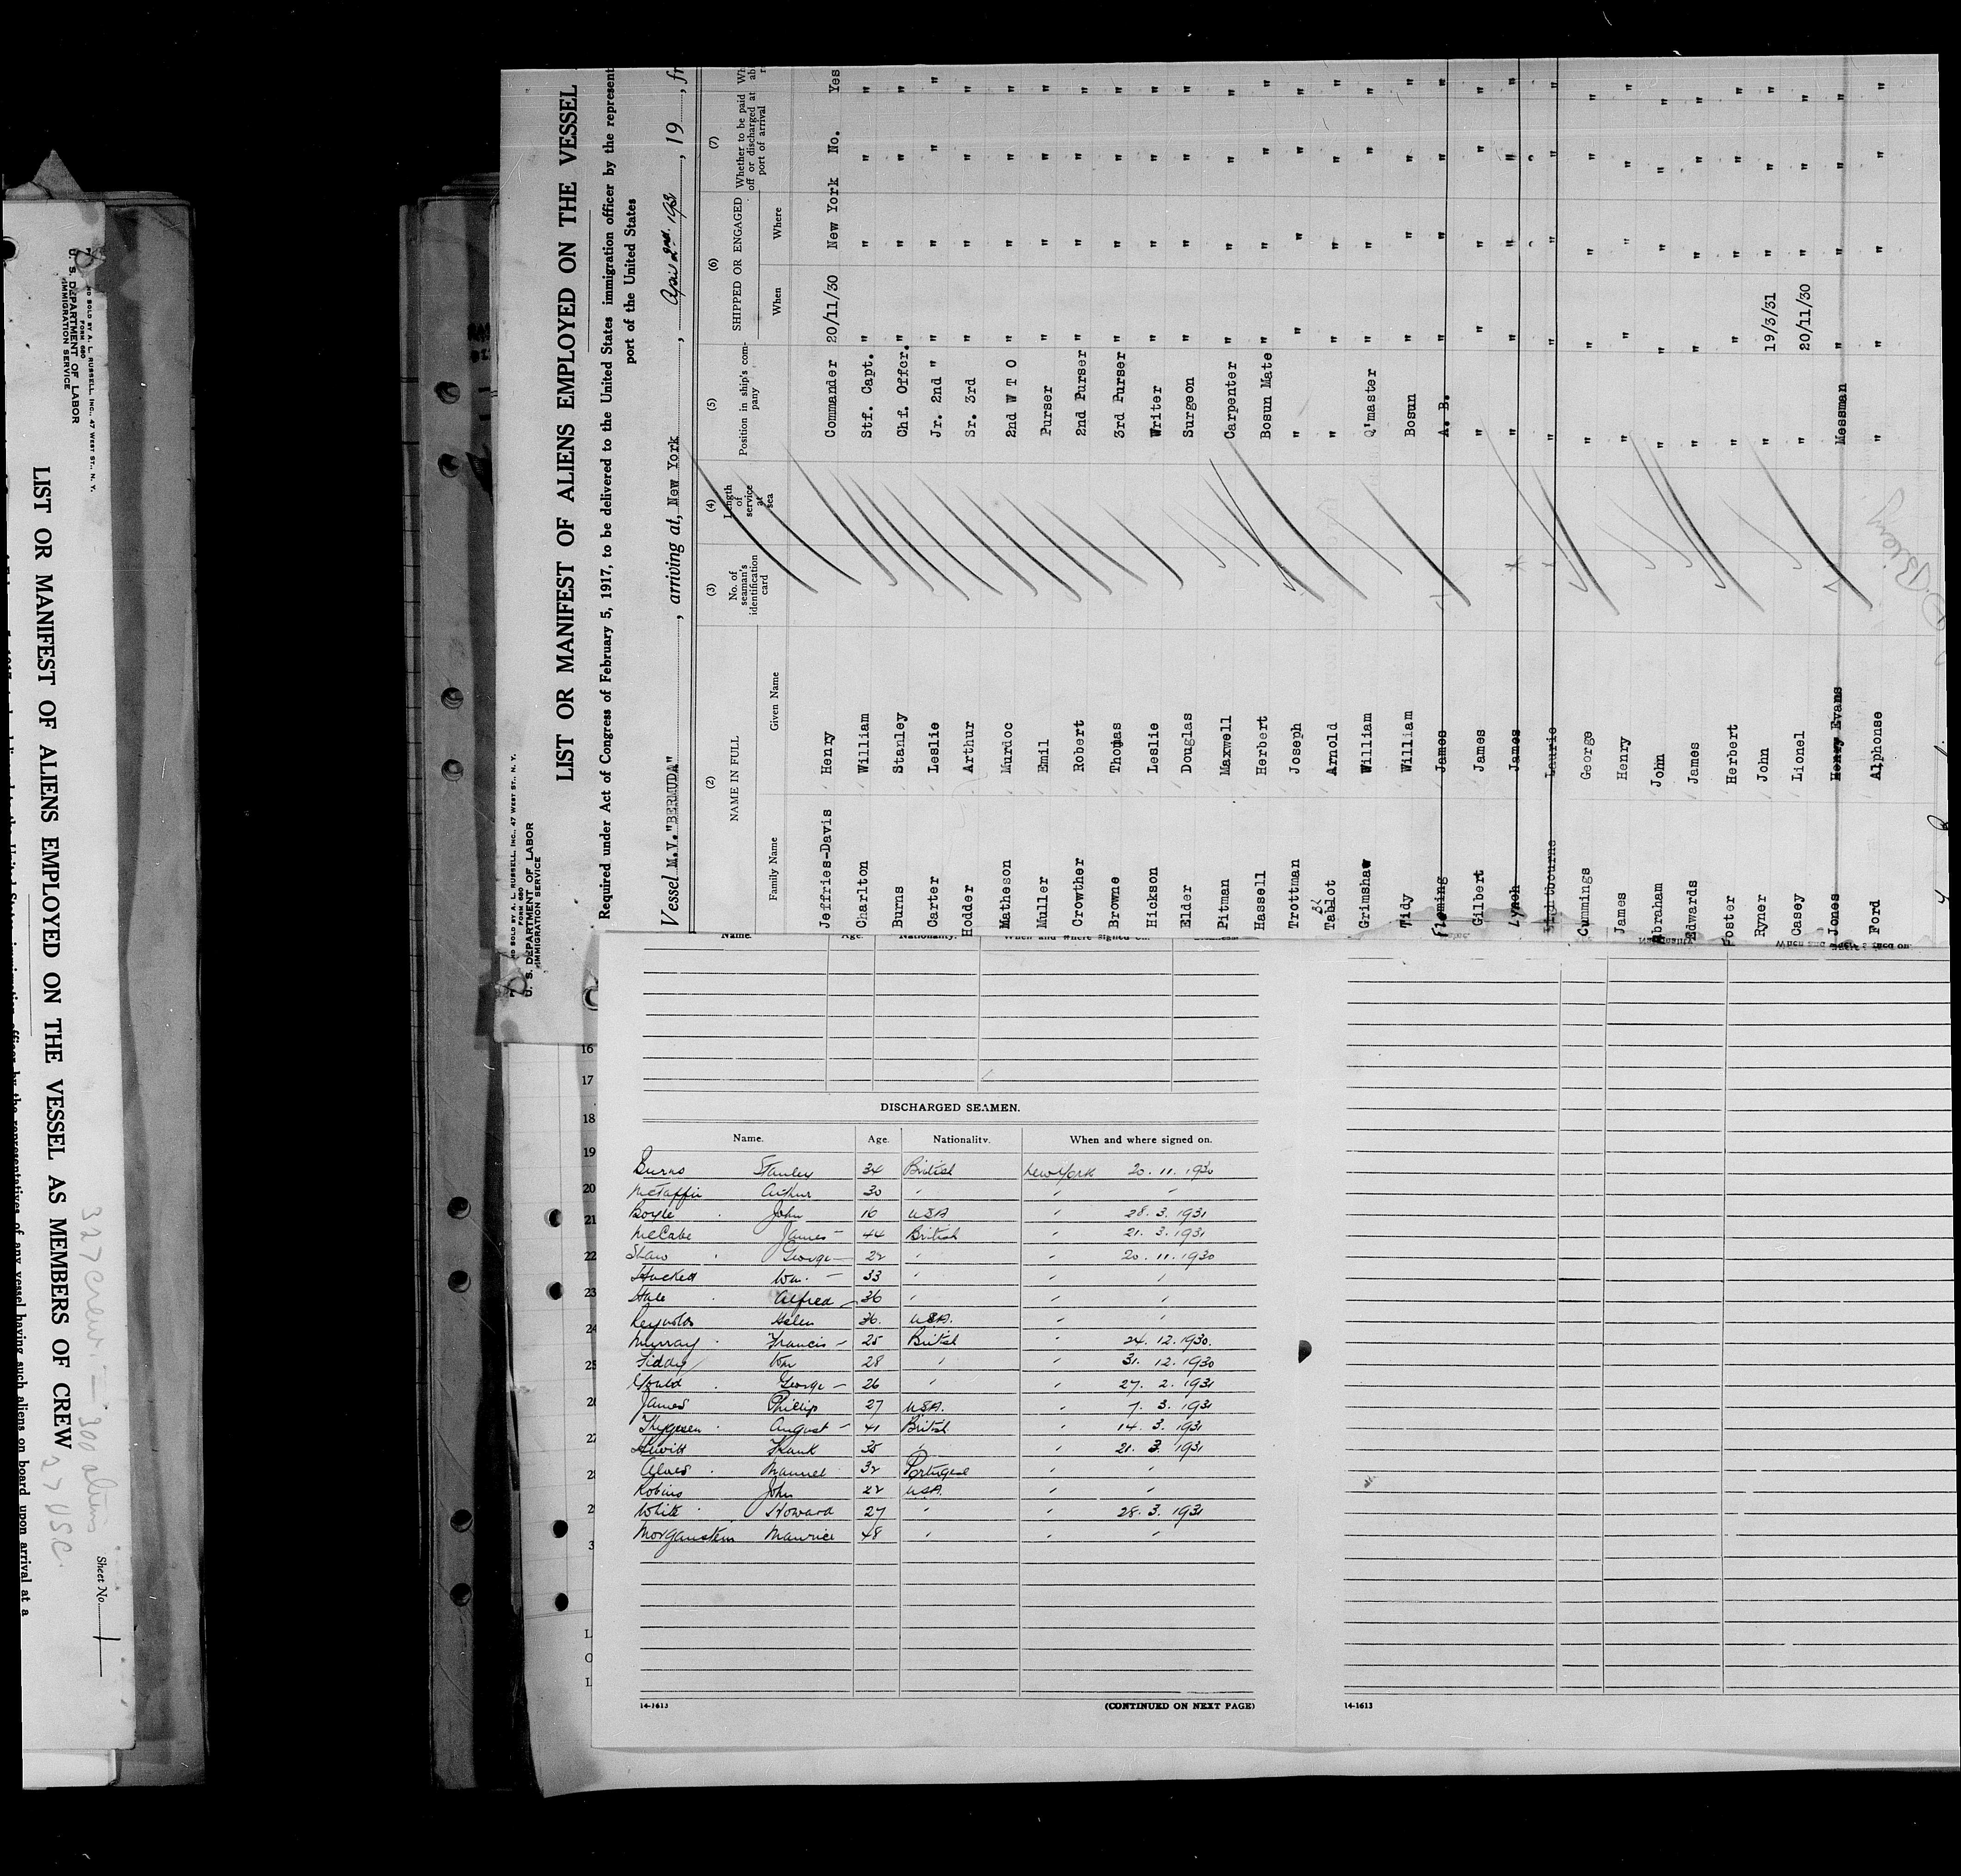 7
ND SOLD BY A. L. RUSSELL, INC., 47 WEST ST., N. Y.
FORM 680
U. S. DEPARTMENT OF LABOR
IMMIGRATION SERVICE
LIST OR MANIFEST OF ALIENS EMPLOYED ON THE VESSEL AS MEMBERS OF CREW
327 Crew — 300 aliens
27 USC.
Sheet No. 1
representatives of any vessel having such aliens on board upon arrival at a
7
ND SOLD BY A. L. RUSSELL, INC., 47 WEST ST., N. Y.
FORM 680
U. S. DEPARTMENT OF LABOR
IMMIGRATION SERVICE
LIST OR MANIFEST OF ALIENS EMPLOYED ON THE VESSEL
Required under Act of Congress of February 5, 1917, to be delivered to the United States immigration officer by the represent
port of the United States
Vessel M.V. "BERMUDA", arriving at, New York, April 2nd. 193, 19, fr
(2) (3) (4) (5) (6) (7)
NAME IN FULL No. of seaman's identification card Length of service at sea Position in ship's company SHIPPED OR ENGAGED Whether to be paid off or discharged at port of arrival
Family Name Given Name When Where
Jeffries-Davis Henry Commander 20/11/30 New York No. Yes
Charlton William Stf. Capt. " " " "
Burns Stanley Chf. Offcr. " " " "
Carter Leslie Jr. 2nd " " " " "
Hodder Arthur Sr. 3rd " " " "
Matheson Murdoc 2nd W T O " " " "
Muller Emil Purser " " " "
Crowther Robert 2nd Purser " " " "
Browne Thomas 3rd Purser " " " "
Hickson Leslie Writer " " " "
Elder Douglas Surgeon " " " "
Pitman Maxwell Carpenter " " " "
Hassell Herbert Bosun Mate " " " "
Trottman Joseph " " " " "
Tablot Arnold " " " " "
Grimshaw William Q'master " " " "
Tidy William Bosun " " " "
Fleming James A. B. " " " "
Gilbert James " " " " "
Lynch James " " " " "
Laurie " " " " "
Cummings George " " " " "
James Henry " " " " "
Abraham John " " " " "
Edwards James " " " " "
Foster Herbert " " " " "
Ryner John " 19/3/31 " " "
Casey Lionel " 20/11/30 " " "
Jones Henry Evans Messman " " " "
Ford Alphonse " " " " "
Name. Age. Nationality. When and where signed on.
16
17
18
19
20
21
22
23
24
25
DISCHARGED SEAMEN.
Name. Age. Nationality. When and where signed on.
Burns Stanley 34 British New York 20. 11. 1930
McTaffie Arthur 30 " " "
Boyle John 16 USA " 28. 3. 1931
McCabe James 44 British " 21. 3. 1931
Shaw George 22 " " 20. 11. 1930
Hackett Wm. 33 " " "
Hale Alfred 36 " " "
Reynolds Helen 36. USA. " "
Murray Francis 25 British " 24. 12. 1930.
Fiddy Wm 28 " " 31. 12. 1930
Gould George 26 " " 27. 2. 1931
James Phillip 27 USA. " 7. 3. 1931
Thygesen August 41 British " 14. 3. 1931
Hewitt Frank 35 " " 21. 3. 1931
Alves Manuel 32 Portugese " "
Robins John 22 USA. " "
White Howard 27 " " 28. 3. 1931
Morganstein Maurice 48 " " "
14-1613 (CONTINUED ON NEXT PAGE)
14-1613